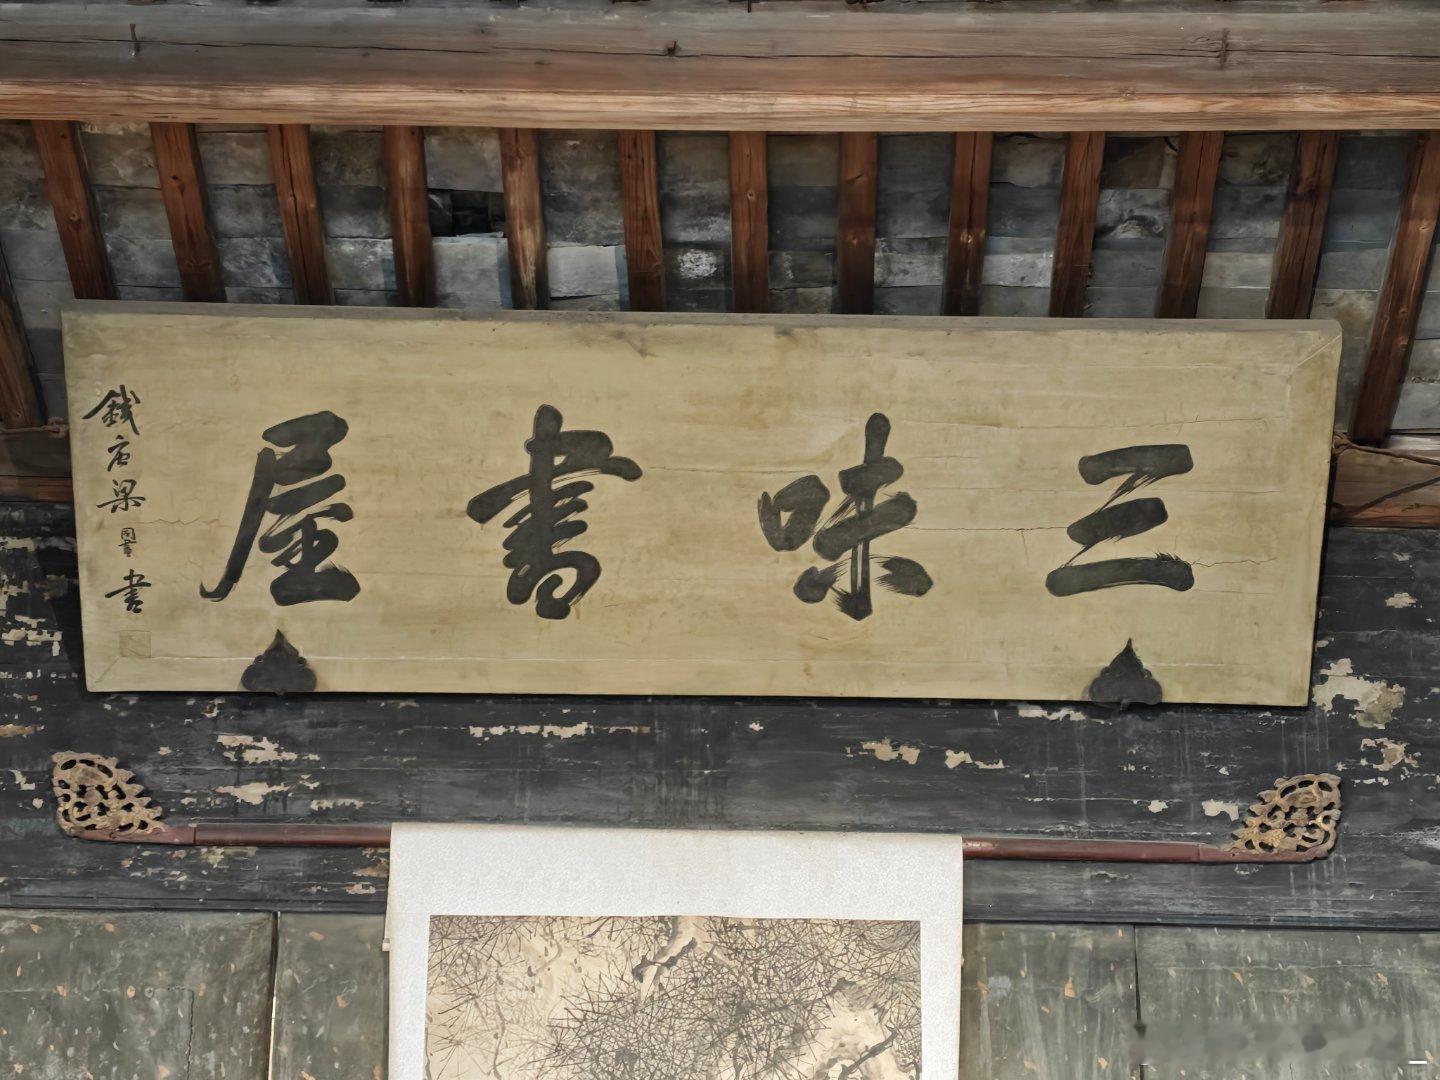 三味書屋
錢唐梁同書書